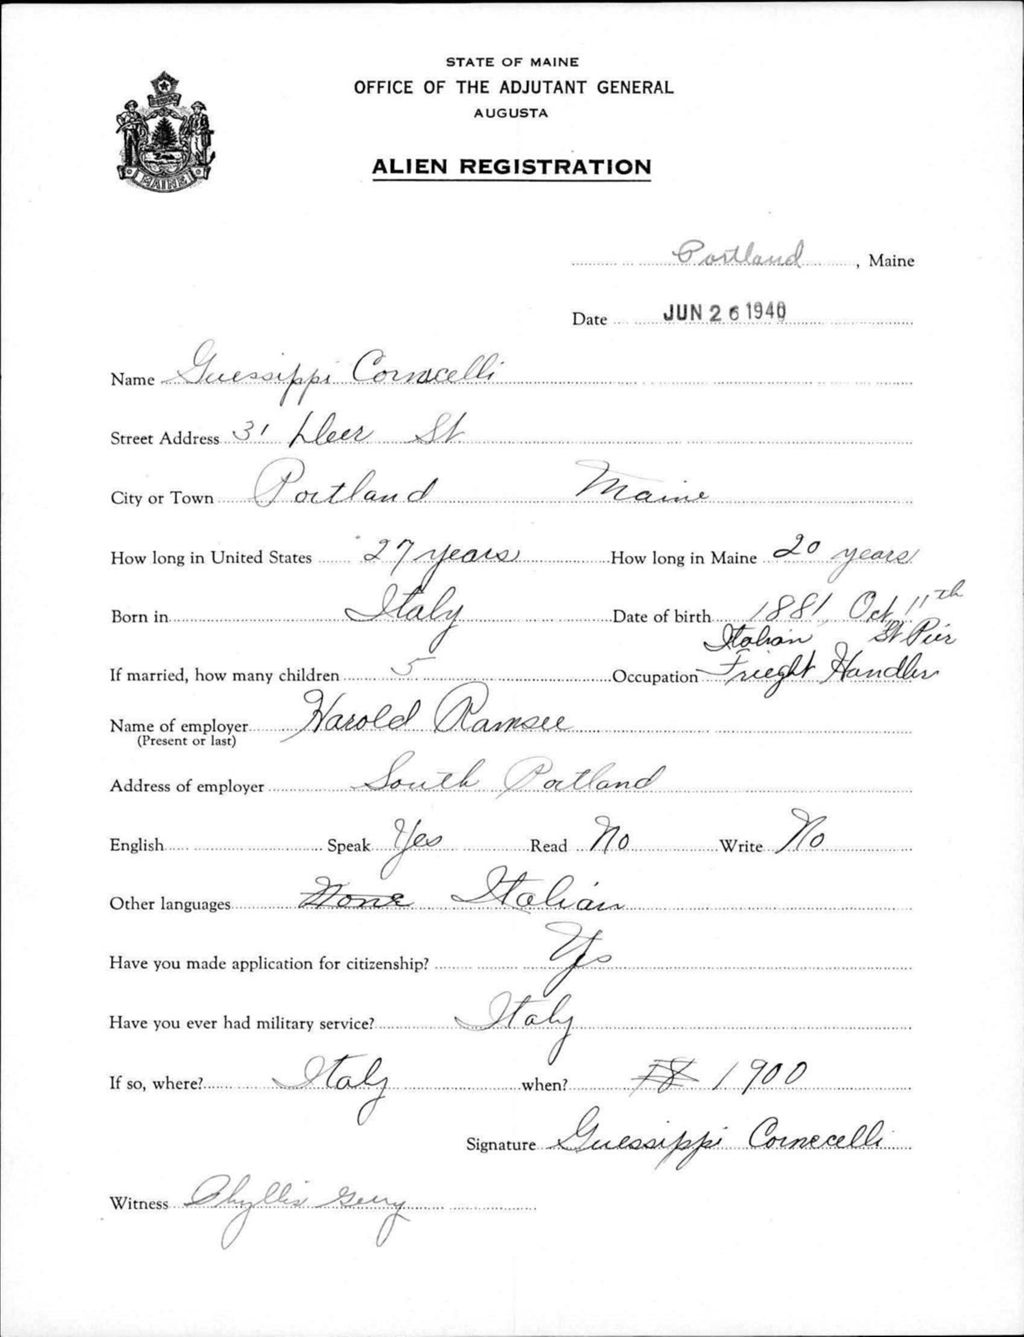 STATE OF MAINE
OFFICE OF THE ADJUTANT GENERAL
AUGUSTA
ALIEN REGISTRATION
MAINE
Portland, Maine
Date JUN 26 1940
Name Guessippi Cornecelli
Street Address 31 Deer St
City or Town Portland Maine
How long in United States 27 years How long in Maine 20 years
Born in Italy Date of birth 1881, Oct, 11th
Italian St Pier
If married, how many children 5 Occupation Frieght Handler
Name of employer Harold Ramsee
(Present or last)
Address of employer South Portland
English Speak Yes Read No Write No
Other languages None Italian
Have you made application for citizenship? Yes
Have you ever had military service? Italy
If so, where? Italy when? 18 1900
Signature Guessippi Cornecelli
Witness Phyllis Gerry